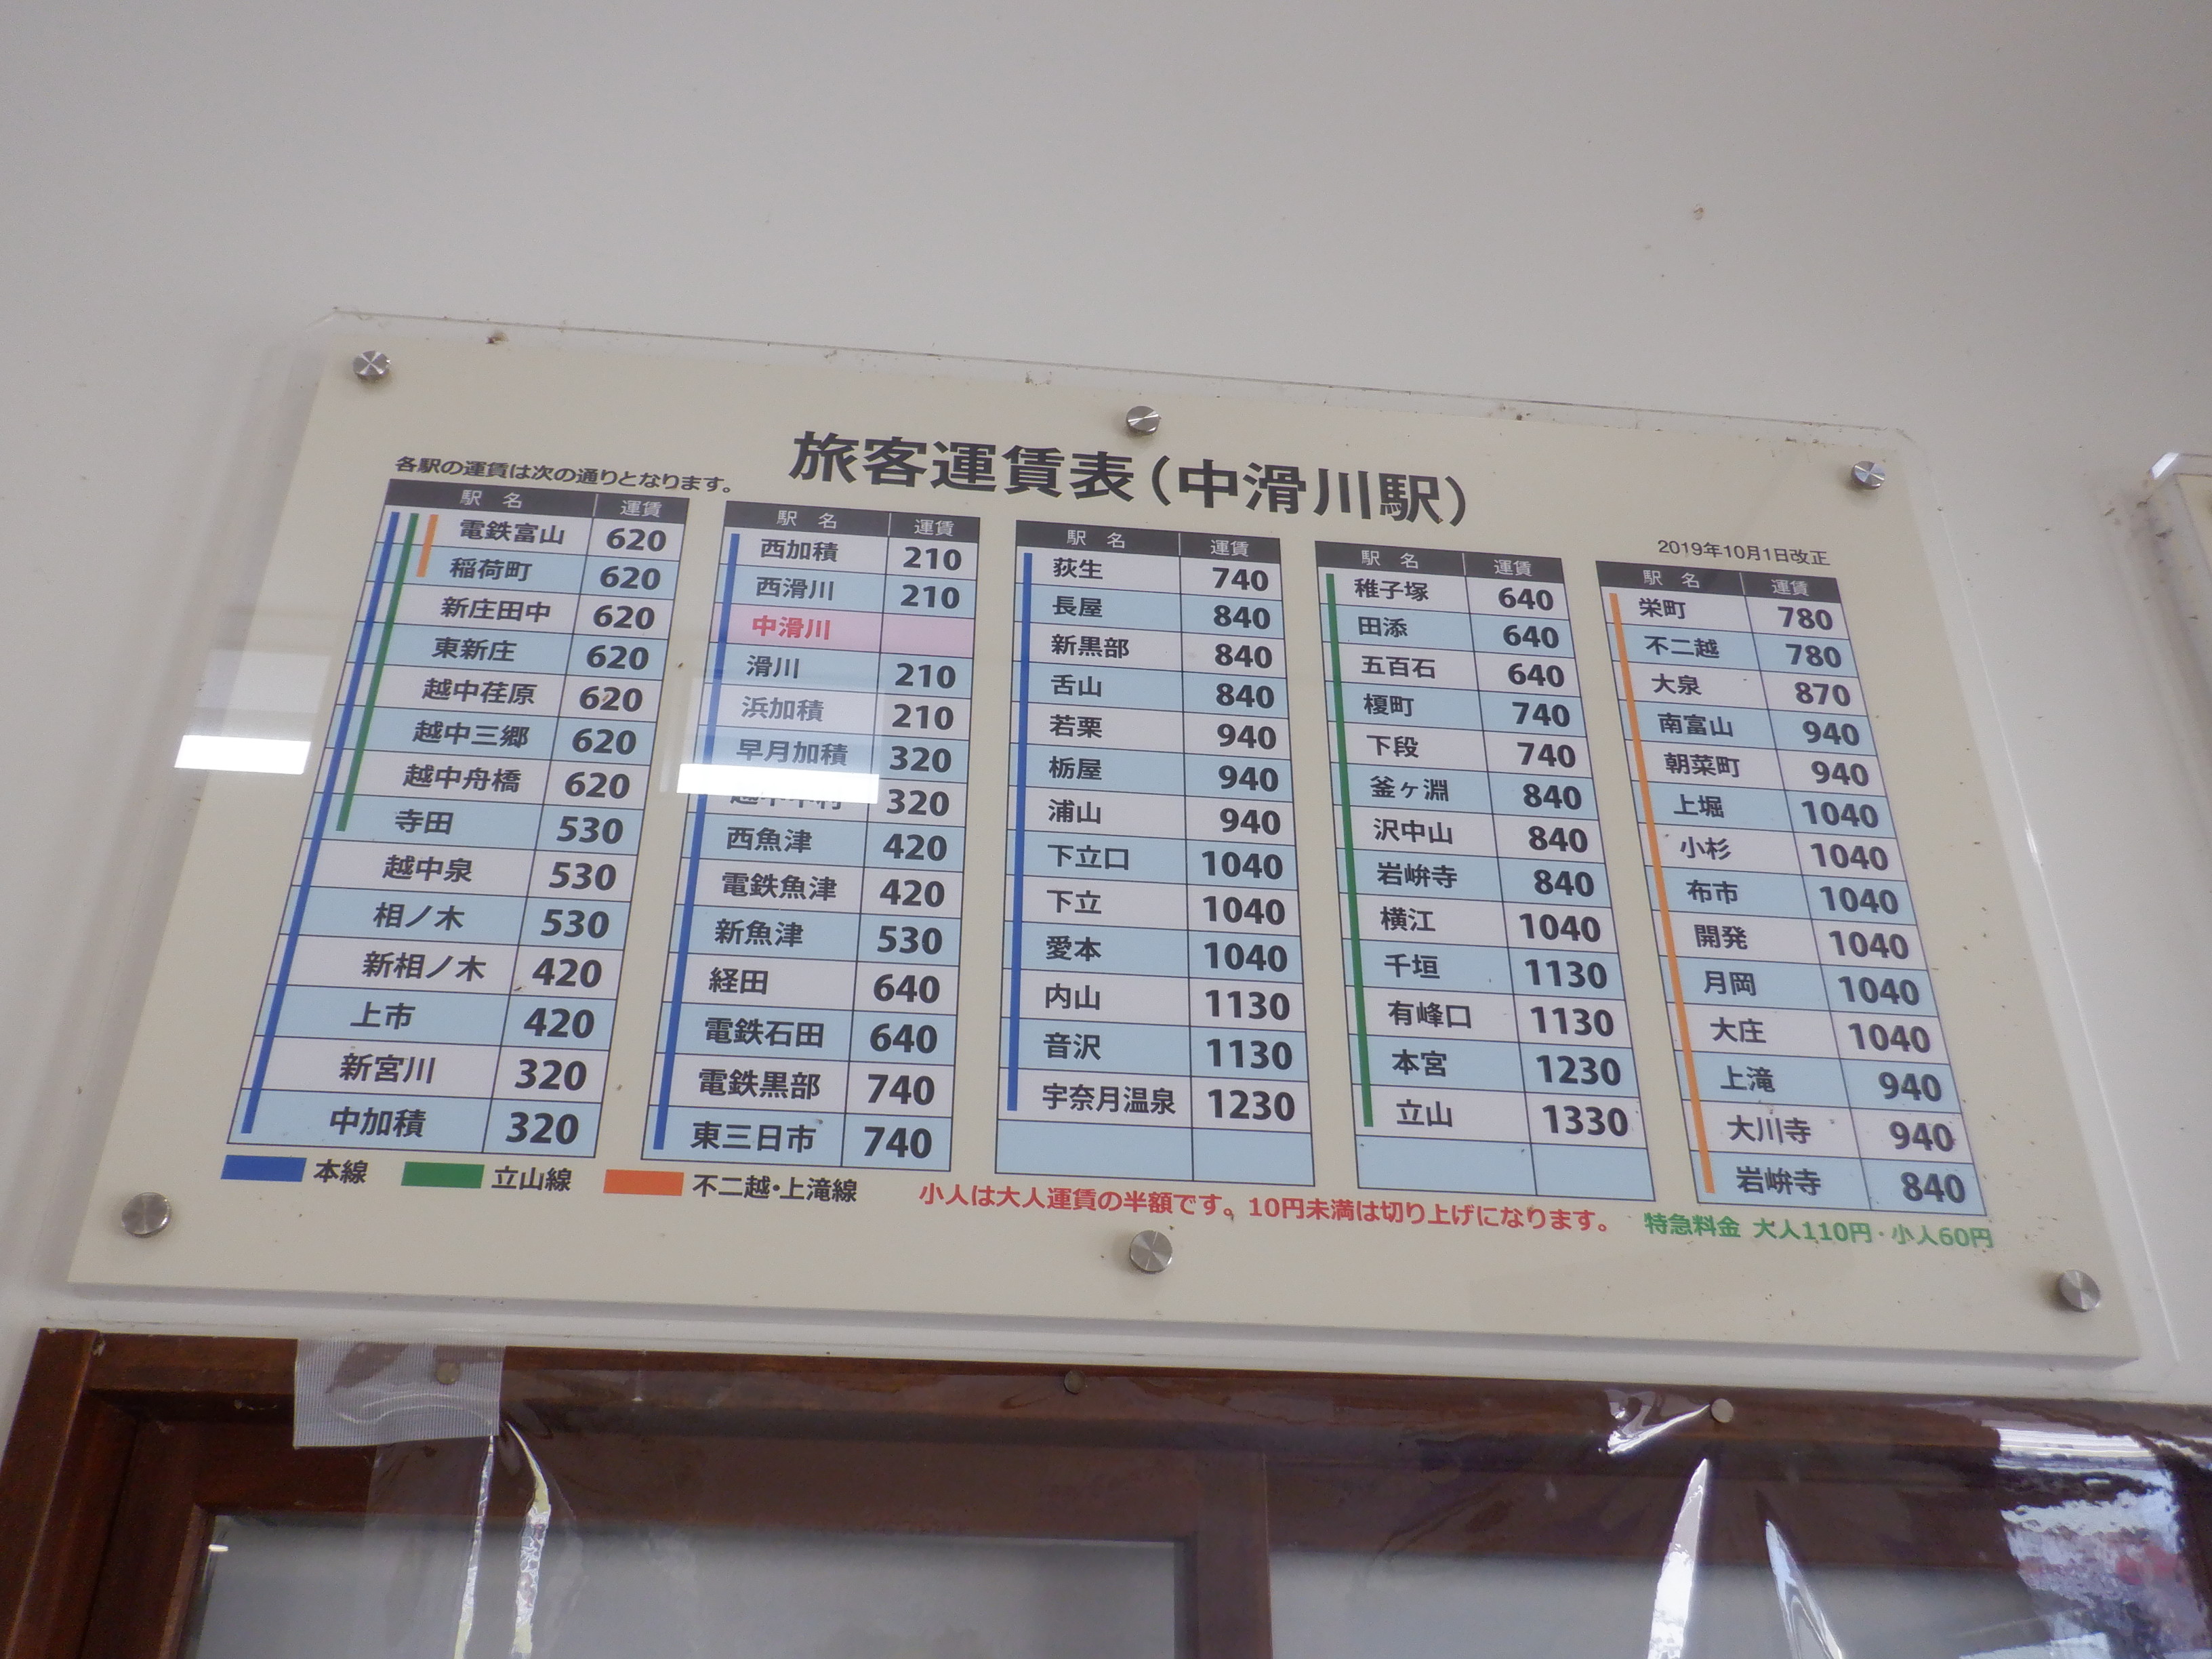 旅客運賃表(中滑川駅)
各駅の運賃は次の通りとなります。
2019年10月1日改正
駅名 運賃
電鉄富山 620
稲荷町 620
新庄田中 620
東新庄 620
越中荏原 620
越中三郷 620
越中舟橋 620
寺田 530
越中泉 530
相ノ木 530
新相ノ木 420
上市 420
新宮川 320
中加積 320
駅名 運賃
西加積 210
西滑川 210
中滑川
滑川 210
浜加積 210
早月加積 320
越中中村 320
西魚津 420
電鉄魚津 420
新魚津 530
経田 640
電鉄石田 640
電鉄黒部 740
東三日市 740
駅名 運賃
荻生 740
長屋 840
新黒部 840
舌山 840
若栗 940
栃屋 940
浦山 940
下立口 1040
下立 1040
愛本 1040
内山 1130
音沢 1130
宇奈月温泉 1230
駅名 運賃
稚子塚 640
田添 640
五百石 640
榎町 740
下段 740
釜ヶ淵 840
沢中山 840
岩峅寺 840
横江 1040
千垣 1130
有峰口 1130
本宮 1230
立山 1330
駅名 運賃
栄町 780
不二越 780
大泉 870
南富山 940
朝菜町 940
上堀 1040
小杉 1040
布市 1040
開発 1040
月岡 1040
大庄 1040
上滝 940
大川寺 940
岩峅寺 840
本線 立山線 不二越・上滝線
小人は大人運賃の半額です。10円未満は切り上げになります。
特急料金 大人110円・小人60円